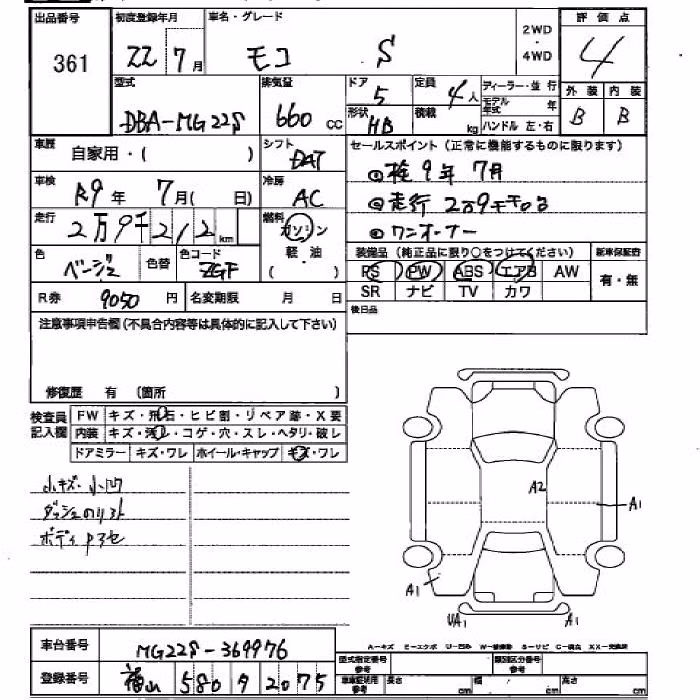 出品番号 初度登録年月 車名・グレード 2WD・4WD 評価点
361 22 7月 モコ S 4
型式 排気量 ドア 5 定員 4人 ディーラー・並行 外装 内装
DBA-MG22S 660 cc 形状 HB 積載 kg モデル年式 年 ハンドル 左・右 B B
車歴 自家用・( ) シフト DAT セールスポイント(正常に機能するものに限ります)
車検 R9年 7月( 日) 冷房 AC ①検 9年 7月
走行 2万9千212km 燃料 ガソリン ②走行 2万9千キロ台
軽・油 ( ) ③ワンオーナー
色 ベージュ 色替 色コード ZGF 装備品(純正品に限り○をつけてください) 新車保証書
PS PW ABS エアB AW 有・無
R券 9050円 名変期限 月 日 SR ナビ TV カワ
注意事項申告欄(不具合内容等は具体的に記入して下さい) 後日品
修復歴 有 (箇所 )
検査員記入欄 FW キズ・飛石・ヒビ割・リペア跡・X要
内装 キズ・汚レ・コゲ・穴・スレ・ヘタリ・破レ
ドアミラー キズ・ワレ ホイール・キャップ キズ・ワレ
小キズ・小凹
ダッシュのリフト
ボディ
A2
A1
A1 UA1 A1
車台番号 MG22S-369976
A-キズ E-エクボ U-凹み W-補修跡 S-サビ C-腐食 XX-交換済
登録番号 福山 580 9 2075
型式指定番号 参考 類別区分番号 参考
車庫証明用 参考 長さ cm 幅 cm 高さ cm